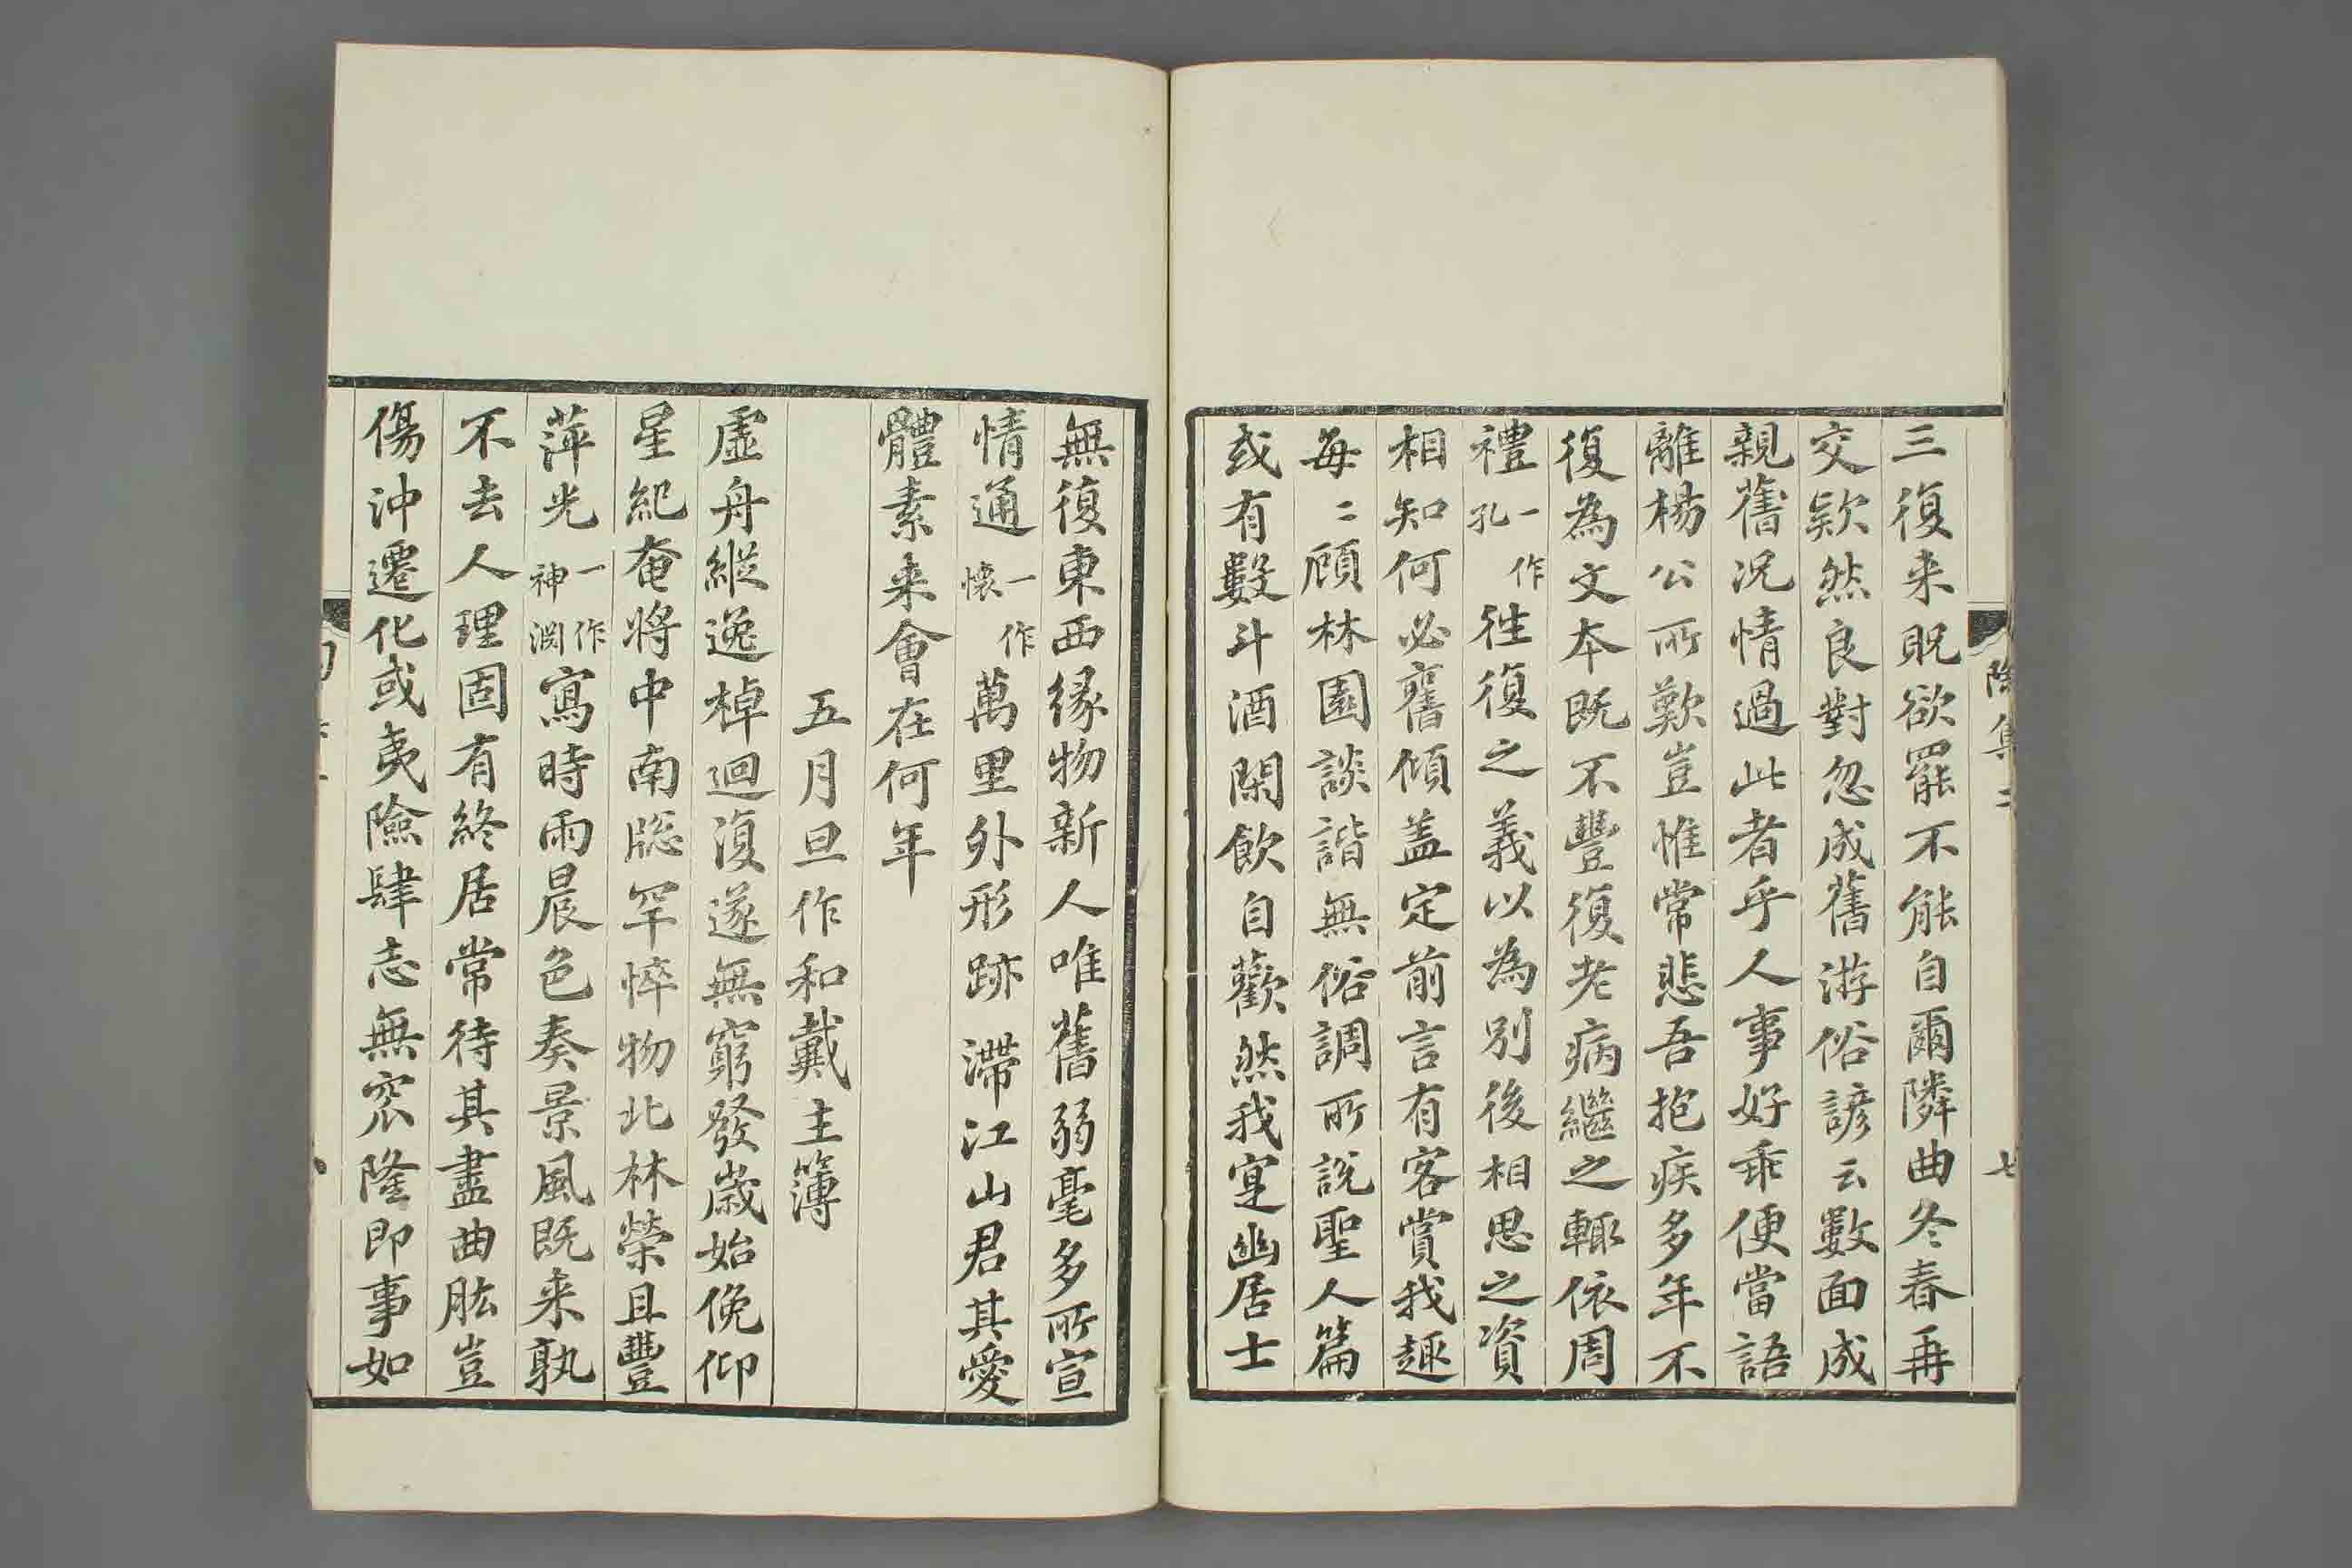 三復来貺欲罷不能自爾隣曲冬春再
交欵然良對忽成舊游俗諺云數面成
親舊况情過此者乎人事好乖便當語
離楊公所歎豈惟常悲吾抱疾多年不
復為文本既不豐復老病繼之輒依周
禮一作孔徃復之義以為别後相思之資
相知何必舊傾盖定前言有客賞我趣
每〻顧林園談諧無俗調所說聖人篇
或有數斗酒閑飲自歡然我寔幽居士
無復東西緣物新人唯舊弱毫多所宣
情通一作懷萬里外形跡滯江山君其愛
體素来會在何年
五月旦作和戴主簿
虛舟縱逸棹迴復遂無窮發歲始俛仰
星紀奄將中南牕罕悴物北林榮且豐
萍光一作神淵寫時雨晨色奏景風既来孰
不去人理固有終居常待其盡曲肱豈
傷沖遷化或夷險肆志無窊隆即事如